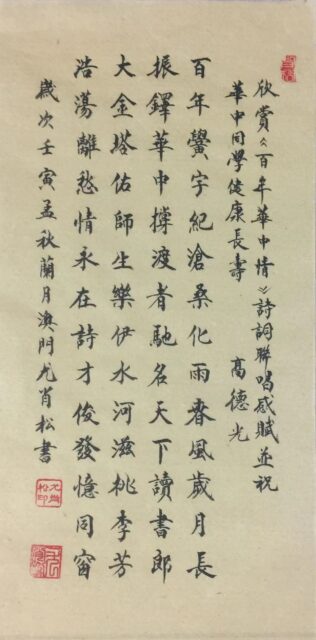 欣賞《百年華中情》詩詞聯唱感賦並祝
華中同學健康長壽　高德光
百年黌宇紀滄桑化雨春風歲月長
振鐸華中撐渡者馳名天下讀書郎
大金塔佑師生樂伊水河滋桃李芳
浩蕩離愁情永在詩才俊發憶同窗
歲次壬寅孟秋蘭月澳門尤肖松書